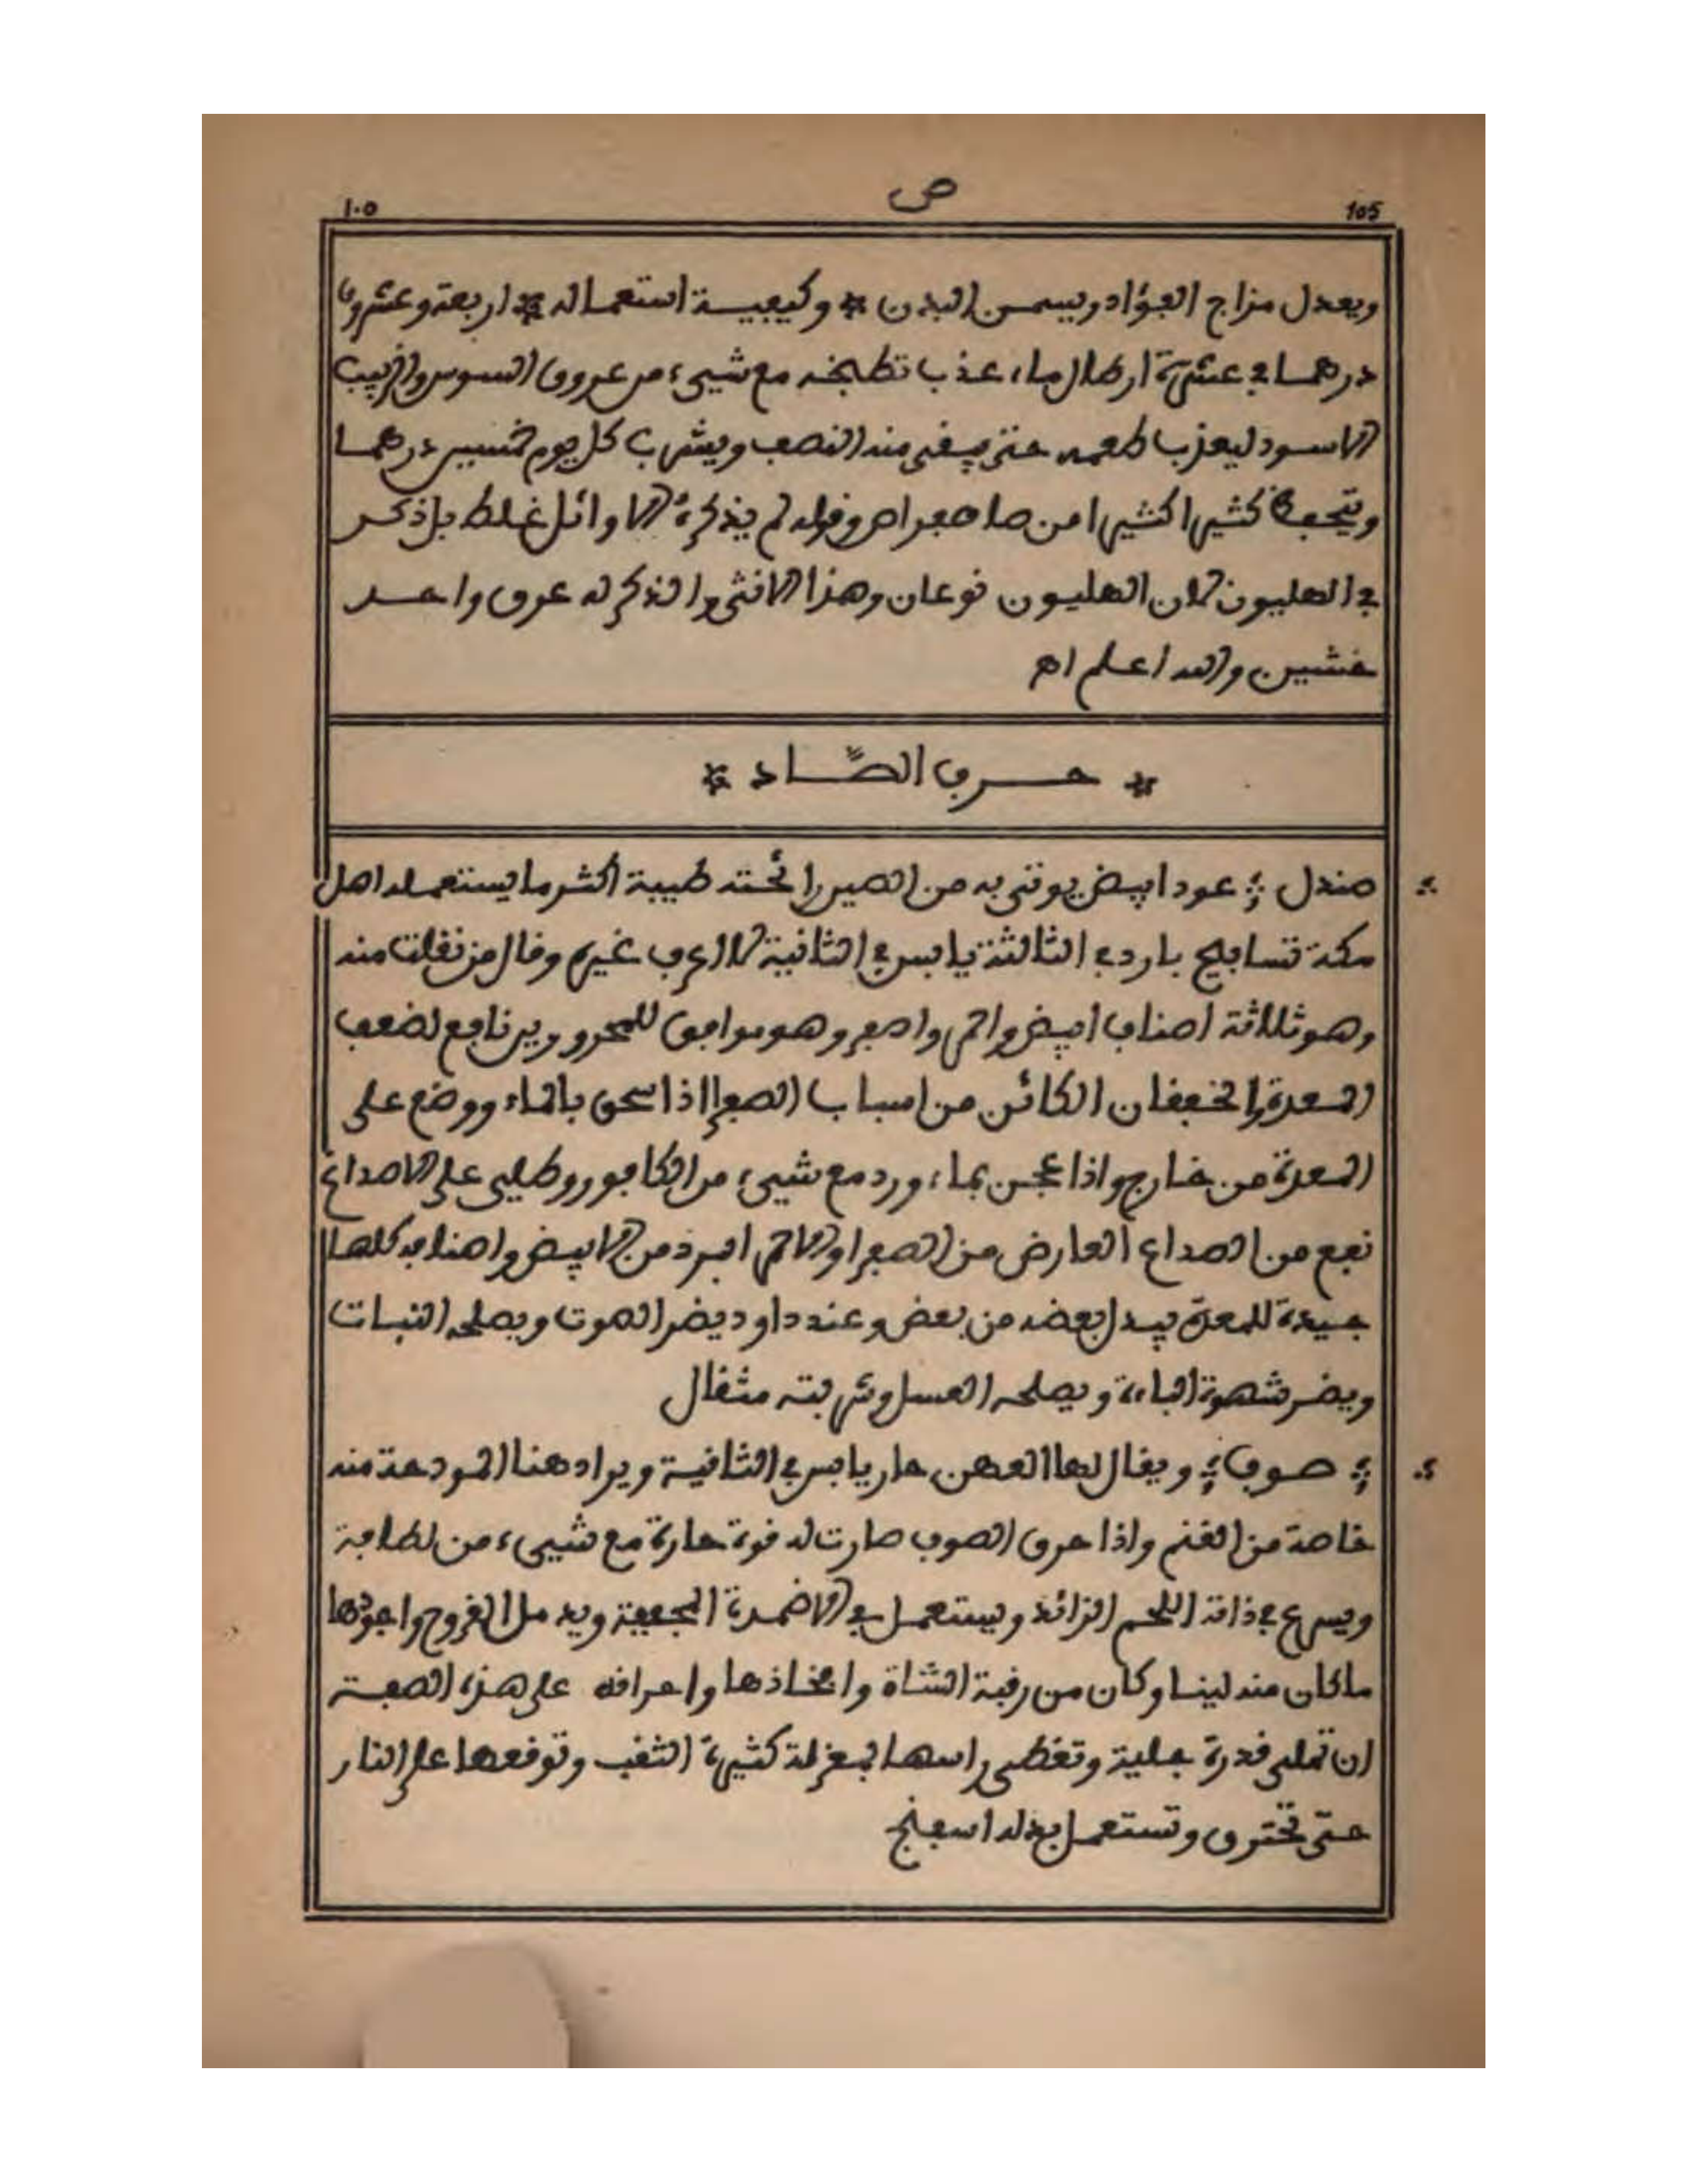 ص
١٠٥ 105
ويعدل مزاج الفؤاد ويسمن البدن * وكيفية استعماله * اربعة وعشرون
درهما في عشرة ارطال ماء عذب تطبخه مع شيء من عروق السوس والزبيب
الاسود ليعذب طعمه حتى يبقى منه النصف ويشرب كل يوم خمسين درهما
كثيرا كثيرا من ما صفر اه وقوله لم يذكره الاوائل غلط بل ذكر
في الهليون لان الهليون نوعان وهذا الانثى والذكر له عرق واحد
خشين والله اعلم اه
* حرف الصّاد *
صندل ؛ عود ابيض يوتى به من الصين رائحته طيبة اكثر ما يستعمله اهل
مكة تسابيح بارد في الثالثة يابس في الثانية لا اعرف غيره وقال من نقلت منه
وهو ثلاثة اصناف ابيض واحمر واصفر وهو موافق للمحرورين نافع لضعف
المعدة والخفقان الكائن من اسباب الصفرا اذا سحق بالماء ووضع على
المعدة من خارج واذا عجن بماء ورد مع شيء من الكافور وطلي على الاصداغ
نفع من الصداع العارض من الصفرا والاحمر ابرد من الابيض واصنافه كلها
جيدة للمعدة يبدل بعضه من بعض وعند داود يضر الصوت ويصلحه النبات
ويضر شهوة الباءة ويصلحه العسل وشربته مثقال
؛ صوف ؛ ويقال لها العهن حار يابس في الثانية ويراد هنا المودعة منه
خاصة من الغنم واذا حرق الصوف صارت له قوة حارة مع شيء من لطافة
ويسرع في ذابة اللحم الزائد ويستعمل في الاضمدة المجففة ويدمل القروح واجودها
ماكان منه لينا وكان من رقبة الشاة وافخاذها واحراقه على هذه الصفة
ان تملى قدرة جلية وتغطى راسها بمغرفة كثيرة الثقب وتوقعها على النار
حتى تحترق وتستعمل بدله اسفنج